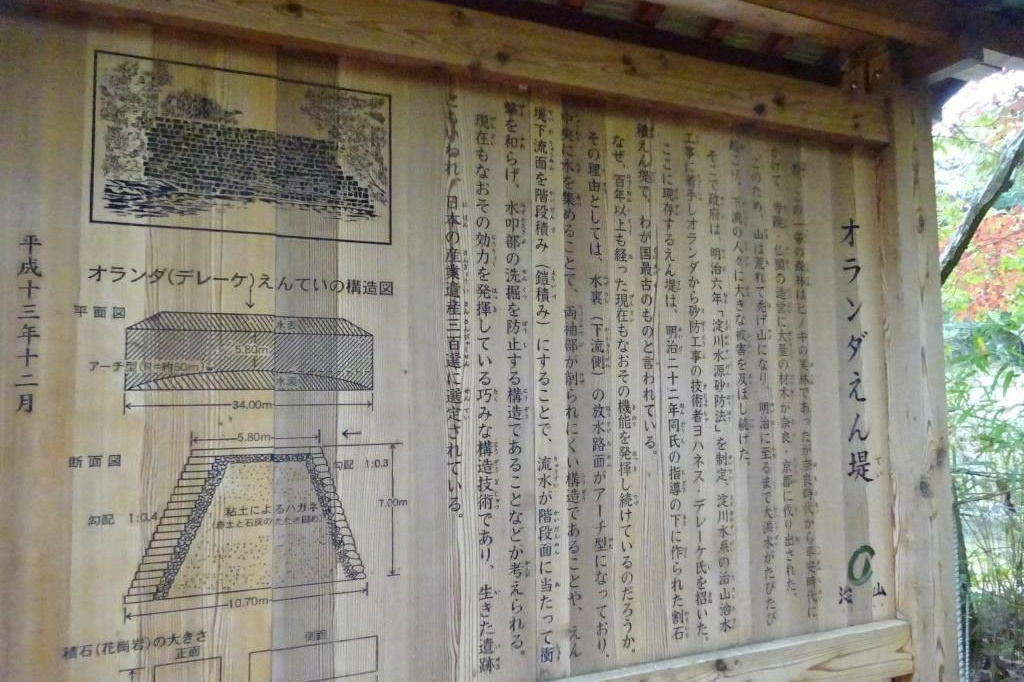 オランダえん堤
治山
この一帯の森林はヒノキの美林であったが奈良時代から平安時代に
かけて、寺院、仏閣の造営に大量の材木が奈良・京都に伐り出された。
このため、山は荒れて禿げ山になり、明治に至るまで大洪水がたびたび
起こり、下流の人々に大きな被害を及ぼし続けた。
そこで政府は、明治六年「淀川水源砂防法」を制定、淀川水系の治山治水
工事に着手しオランダから砂防工事の技術者ヨハネス・デレーケ氏を招いた。
ここに現存するえん堤は、明治二十二年同氏の指導の下に作られた割石
積えん堤で、わが国最古のものと言われている。
なぜ、百年以上も経った現在もなおその機能を発揮し続けているのだろうか。
その理由としては、水裏（下流側）の放水路面がアーチ型になっており、
中央に水を集めることで、両袖部が削られにくい構造であることや、えん
堤下流面を階段積み（鎧積み）にすることで、流水が階段面に当たって衝
撃を和らげ、水叩部の洗掘を防止する構造であることなどが考えられる。
現在もなおその効力を発揮している巧みな構造技術であり、生きた遺跡
ともいわれ、日本の産業遺産三百選に選定されている。
オランダ(デレーケ)えんていの構造図
平面図
水表
5.80m
アーチ型(R=約50m)
水裏
34.00m
断面図
5.80m
勾配 1:0.3
勾配 1:0.4
粘土によるハガネ
(赤土と石灰のたたき固め)
7.00m
10.70m
積石(花崗岩)の大きさ
正面
側面
平成十三年十二月